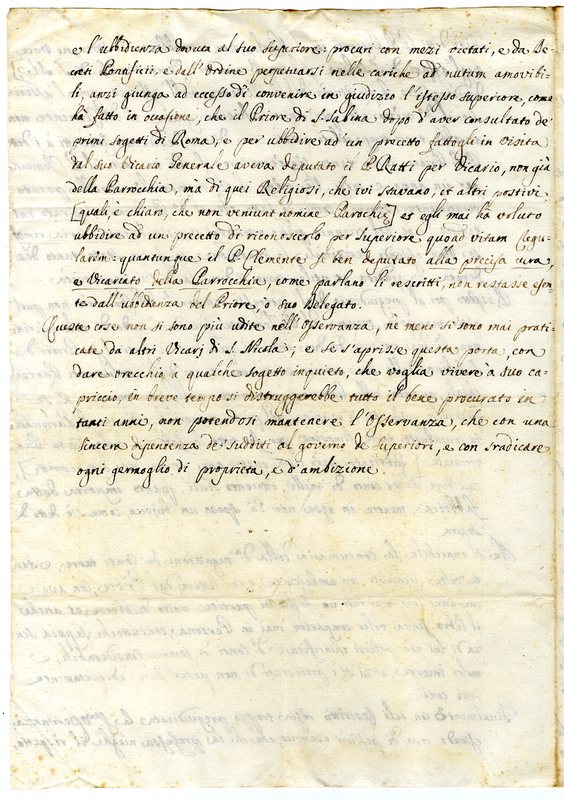 e l'ubbidienza dovuta al suo Superiore: procuri con mezi vietati, e da De=
creti Pontificij, e dall'Ordine perpetuarsi nelle cariche ad nutum amovibi=
li, anzi giunga ad eccesso di convenire in giudizio l'istesso Superiore, come
hà fatto in occasione, che il Priore di S. Sabina dopo d'aver consultato de'
primi sogetti di Roma, e per ubbidire ad'un precetto fattogli in Visita
dal suo Vicario Generale aveva deputato il P. Ratti per Vicario, non già
della Parrocchia, mà di quei Religiosi, che ivi stavano, et altri postivi
[quali, è chiaro, che non veniunt nomine Parochię] et egli mai hà voluto
ubbidire ad un precetto di riconoscerlo per Superiore quoad vitam Regu=
larem: quantunque il P. Clemente se ben deputato alla precisa cura,
e Vicariato della Parrocchia, come parlano li rescritti, non restasse esen=
te dall'ubbidenza del Priore, ò suo Delegato.
Queste cose non si sono più udite nell'Osservanza, nè meno si sono mai prati=
cate da altri Vicarj di S. Nicola; e se s'aprisse questa porta con
dare orecchio à qualche sogetto inquieto, che voglia vivere à suo ca=
priccio, in breve tempo si distruggerebbe tutto il bene procurato in
tanti anni, non potendosi mantenere l'Osservanza, che con una
sincera dipendenza de' sudditi al governo de' Superiori, e con sradicare
ogni germoglio di proprietà, e d'ambizione.